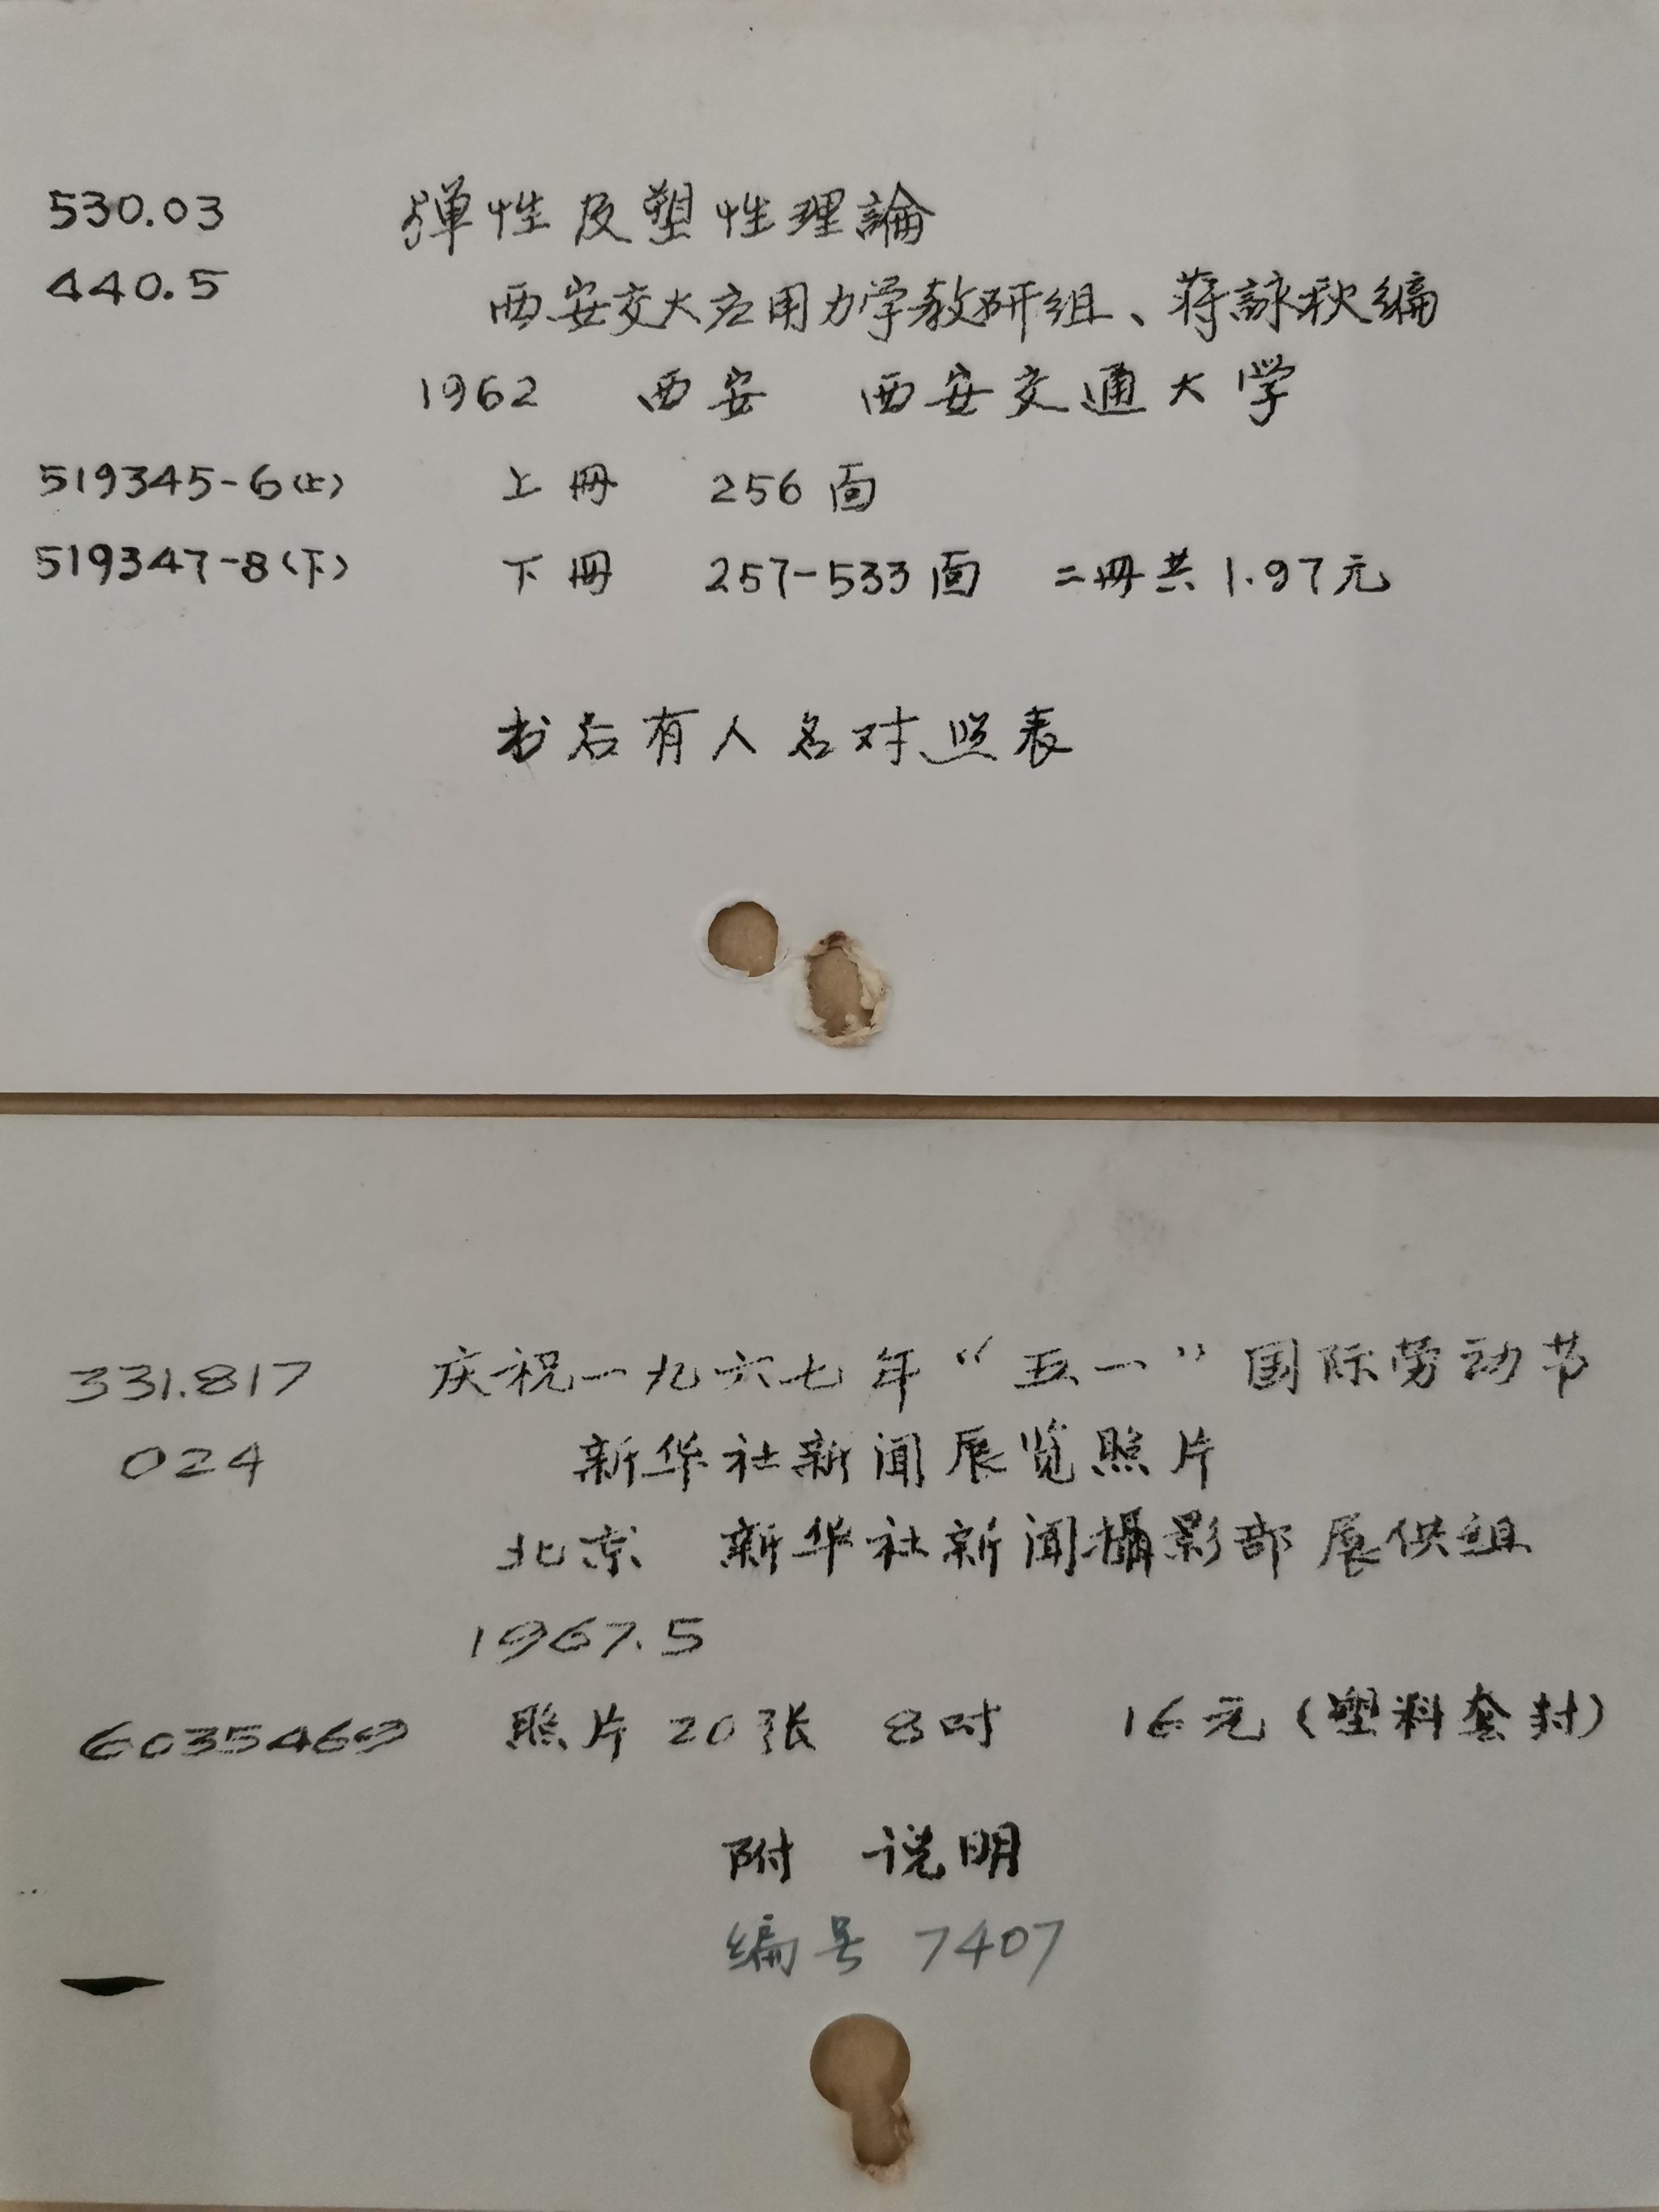 530.03 弹性及塑性理論
440.5 西安交大应用力学教研组、蒋詠秋编
1962 西安 西安交通大学
519345-6(上) 上册 256面
519347-8(下) 下册 257-533面 二册共1.97元
书后有人名对照表
331.817 庆祝一九六七年“五一”国际劳动节
024 新华社新闻展览照片
北京 新华社新闻攝影部展供组
1967.5
6035469 照片20张 8吋 16元(塑料套封)
附 说明
编号 7407